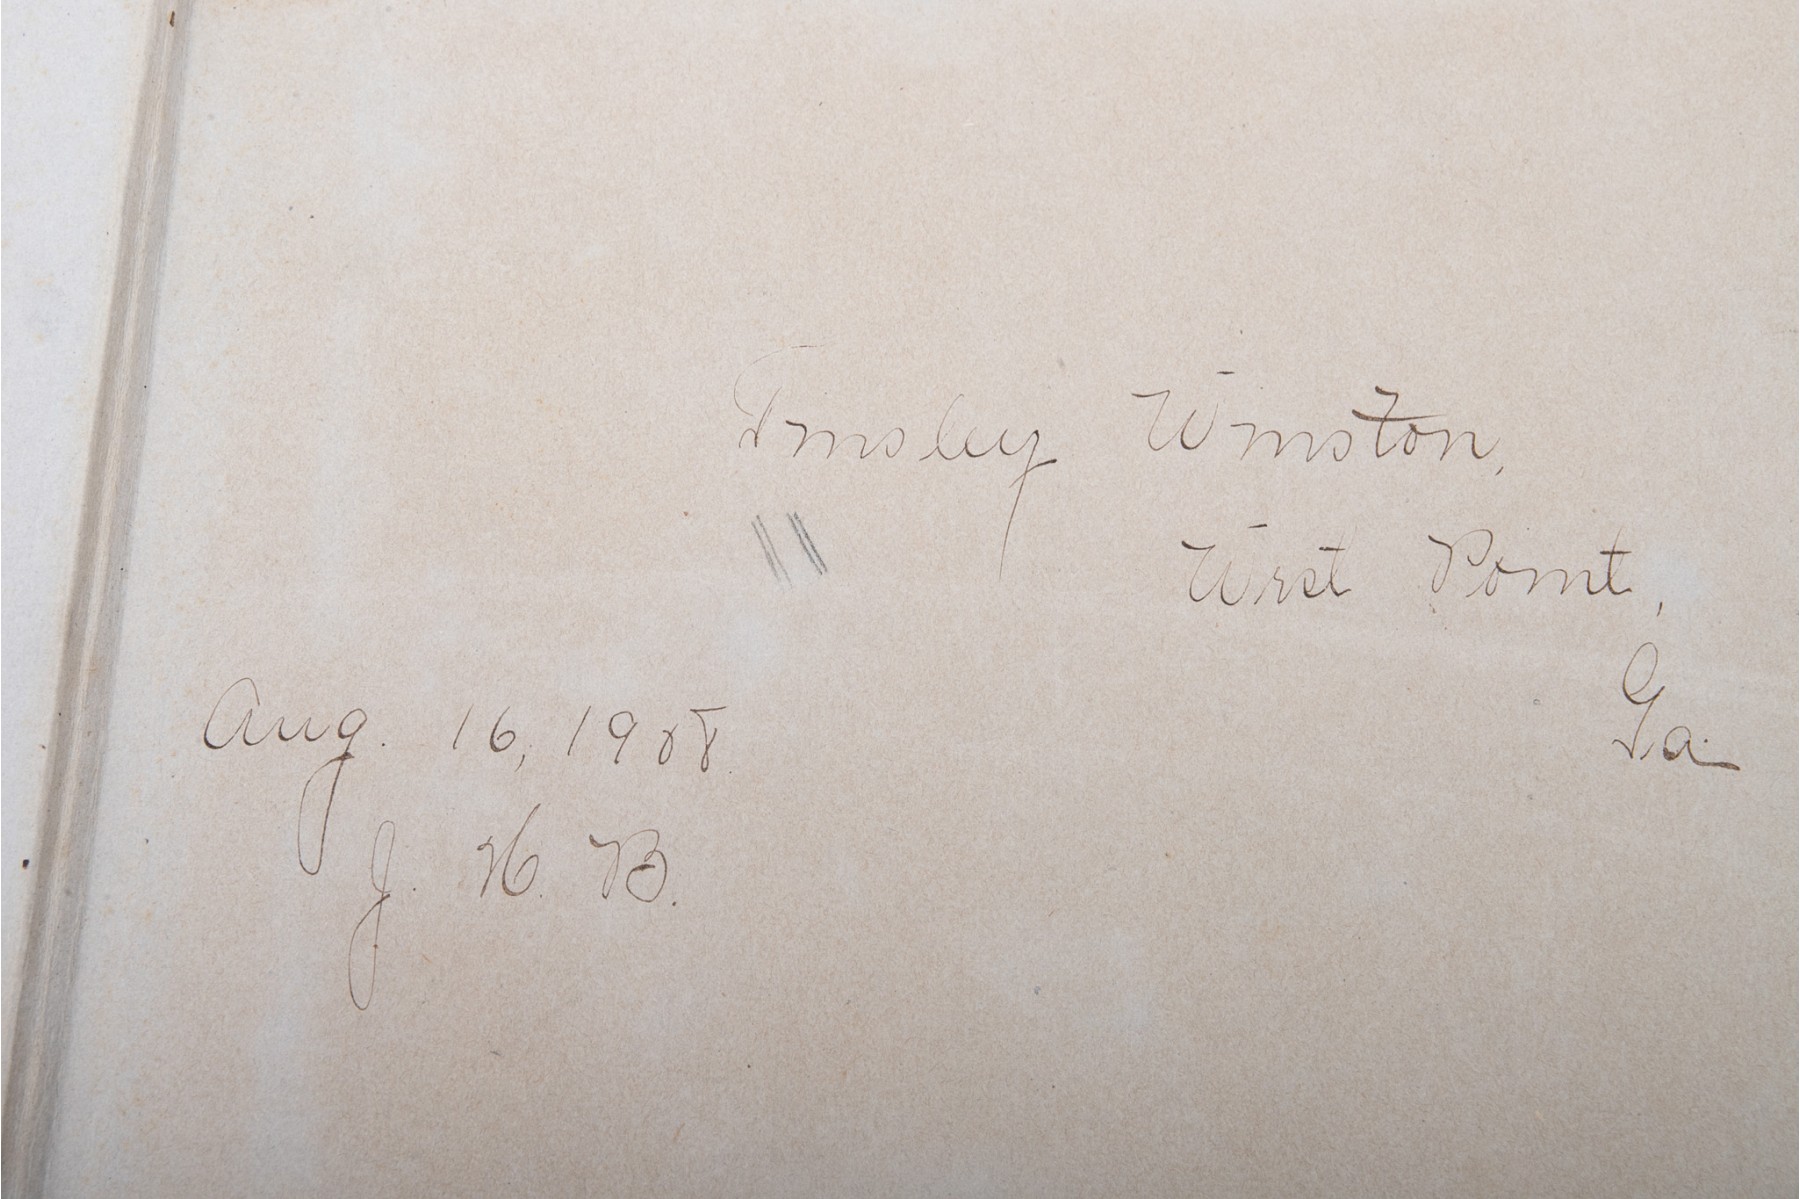 Tinsley Winston,
West Point,
Ga.
Aug. 16, 1908.
J. H. B.